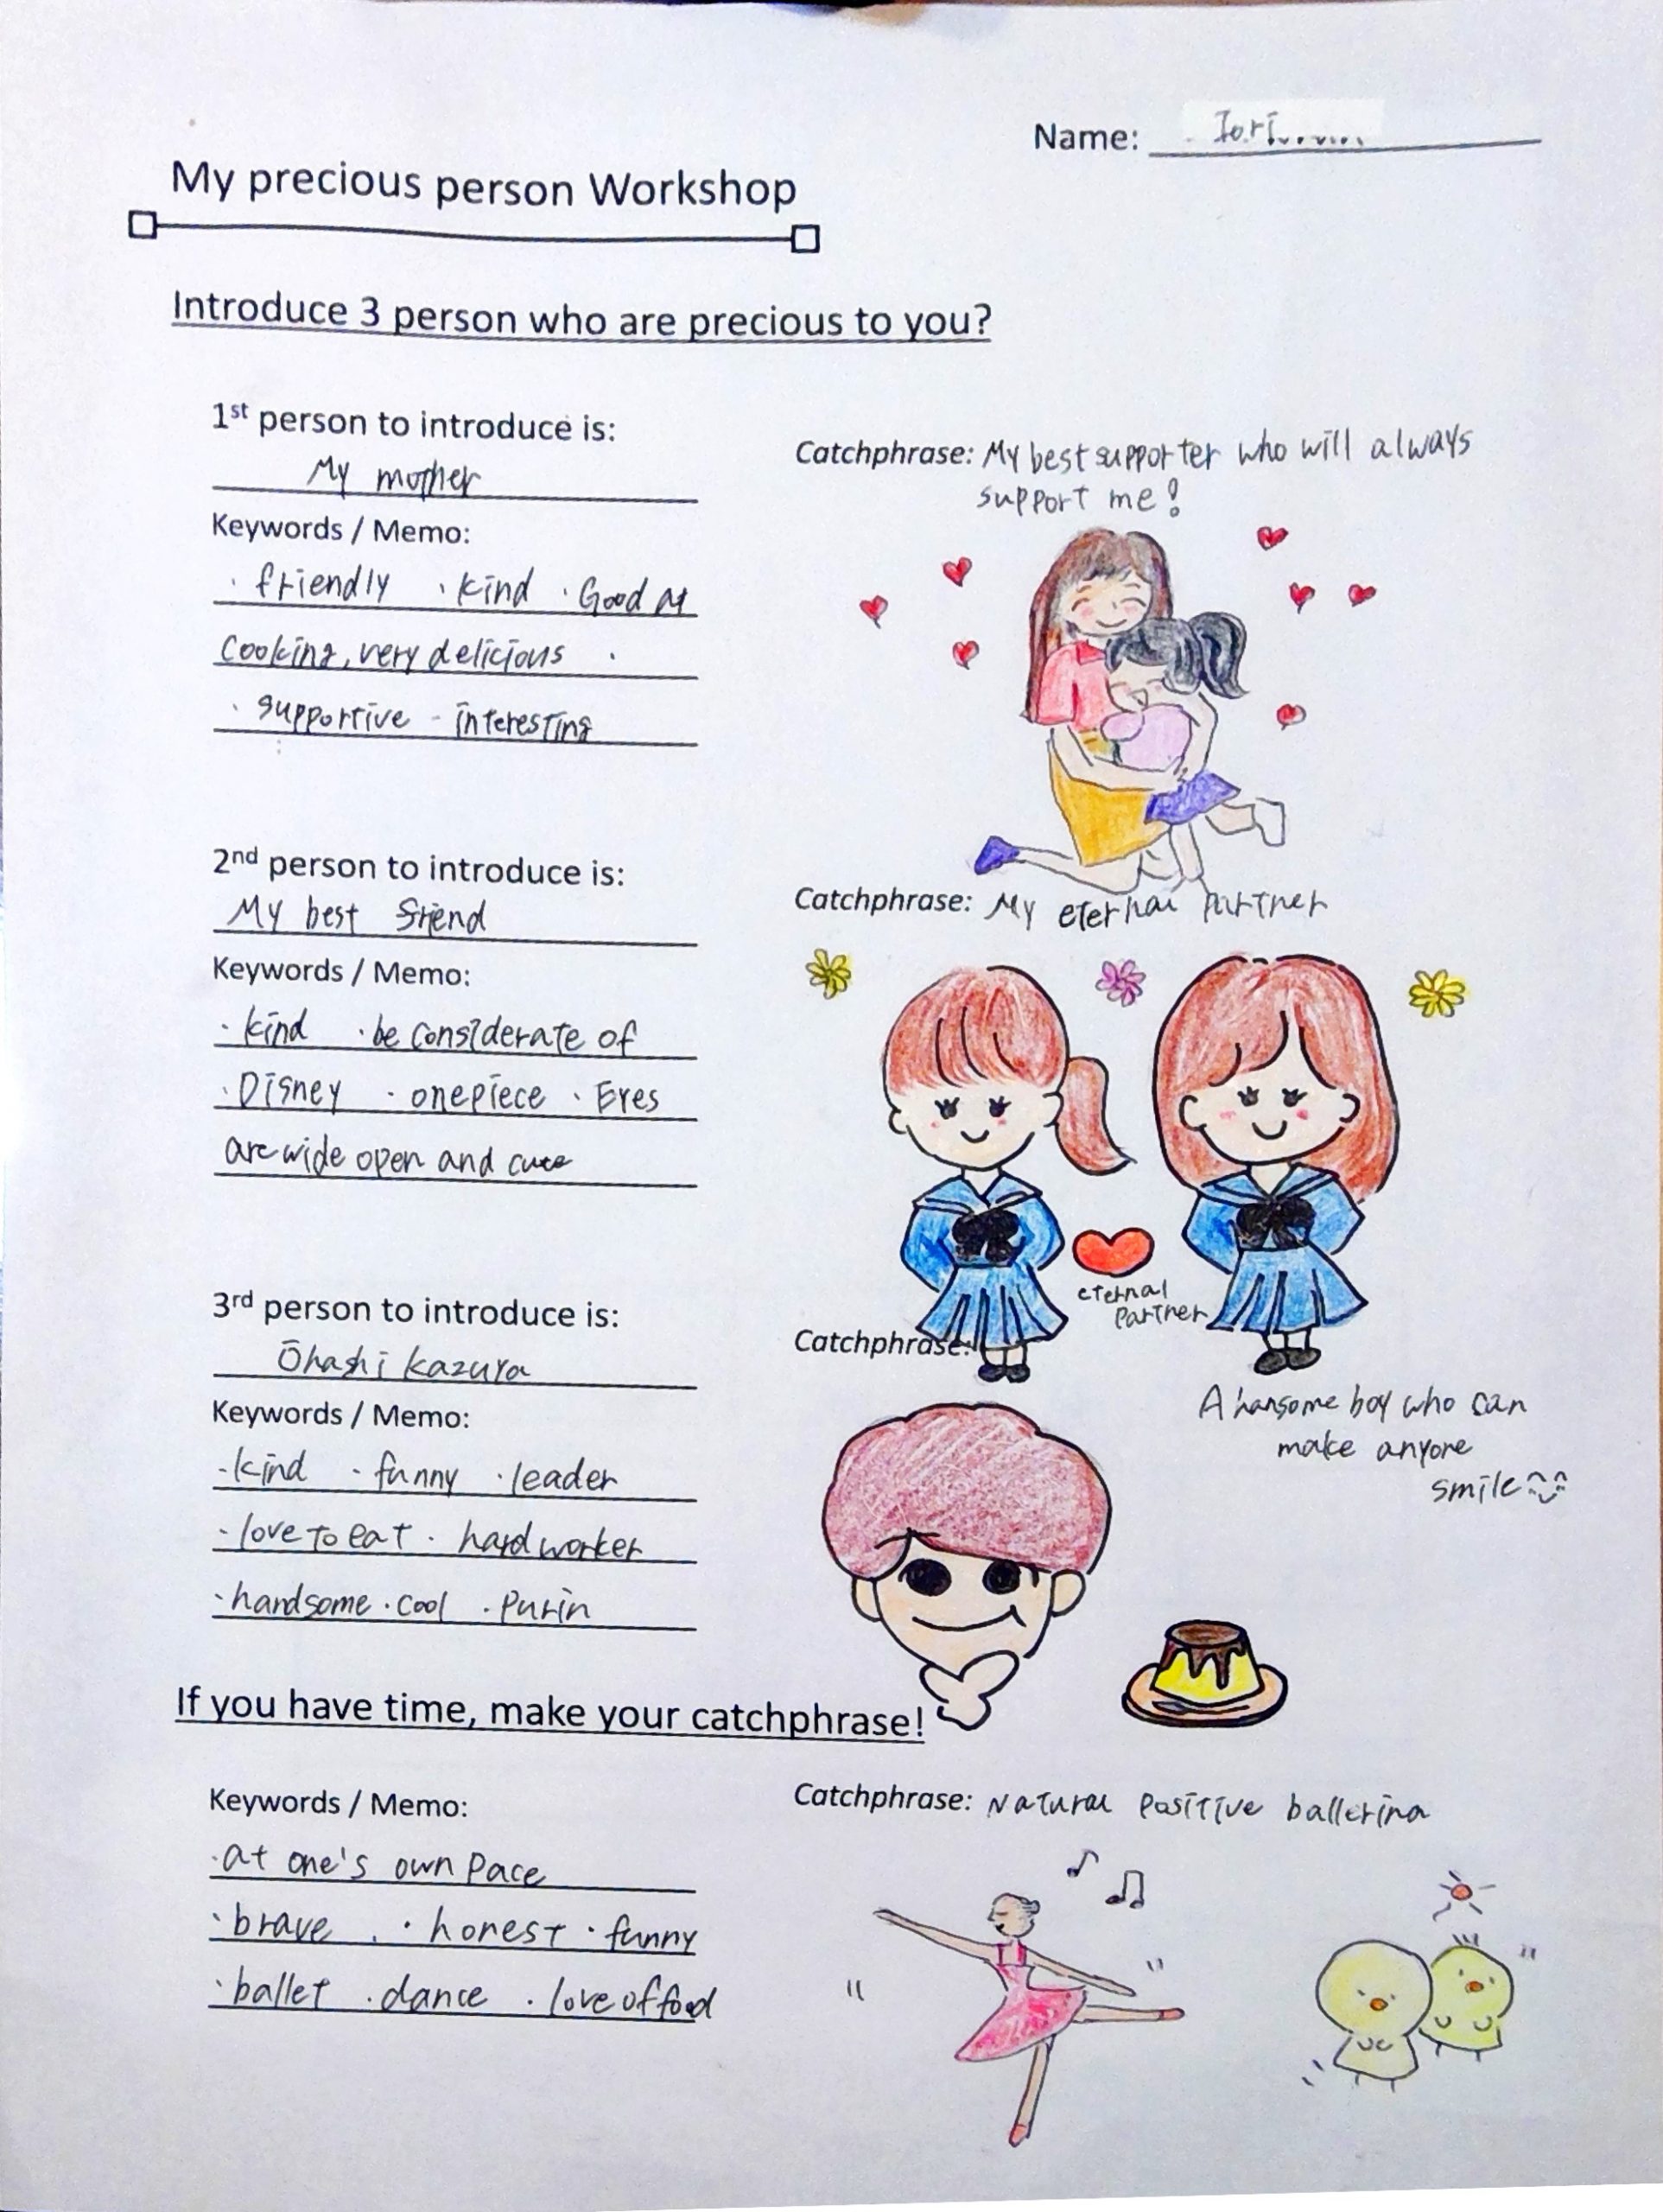 Name: Iori.......
My precious person Workshop
Introduce 3 person who are precious to you?
1st person to introduce is:
My mother
Keywords / Memo:
· friendly · kind · Good at
cooking, very delicious ·
· supportive - interesting
Catchphrase: My best supporter who will always
support me!
2nd person to introduce is:
My best friend
Keywords / Memo:
· kind · be considerate of
· Disney · onepiece · Eyes
are wide open and cute
Catchphrase: My eternal partner
eternal
partner
3rd person to introduce is:
Ōhashi kazuya
Keywords / Memo:
· kind · funny · leader
· love to eat · hard worker
· handsome · cool · purin
Catchphrase:
A hansome boy who can
make anyone
smile
If you have time, make your catchphrase!
Keywords / Memo:
· at one's own pace
· brave · honest · funny
· ballet · dance · love of food
Catchphrase: Natural positive ballerina